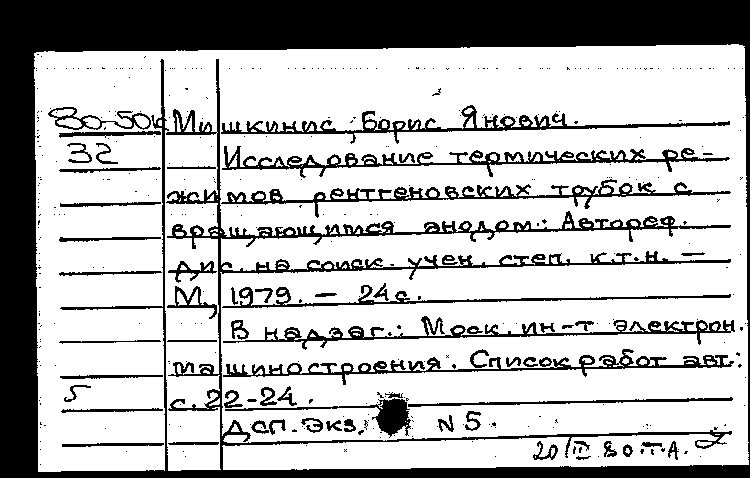 80-50к Мишкинис, Борис Янович.
32 Исследование термических ре-
жимов рентгеновских трубок с
вращающимся анодом: Автореф.
дис. на соиск. учен. степ. к.т.н. —
М., 1979. — 24 с.
В надзаг.: Моск. ин-т электрон.
машиностроения. Список работ авт.:
5 с. 22-24.
ДСП. Экз. N 5.
20/II 80 Т.А.